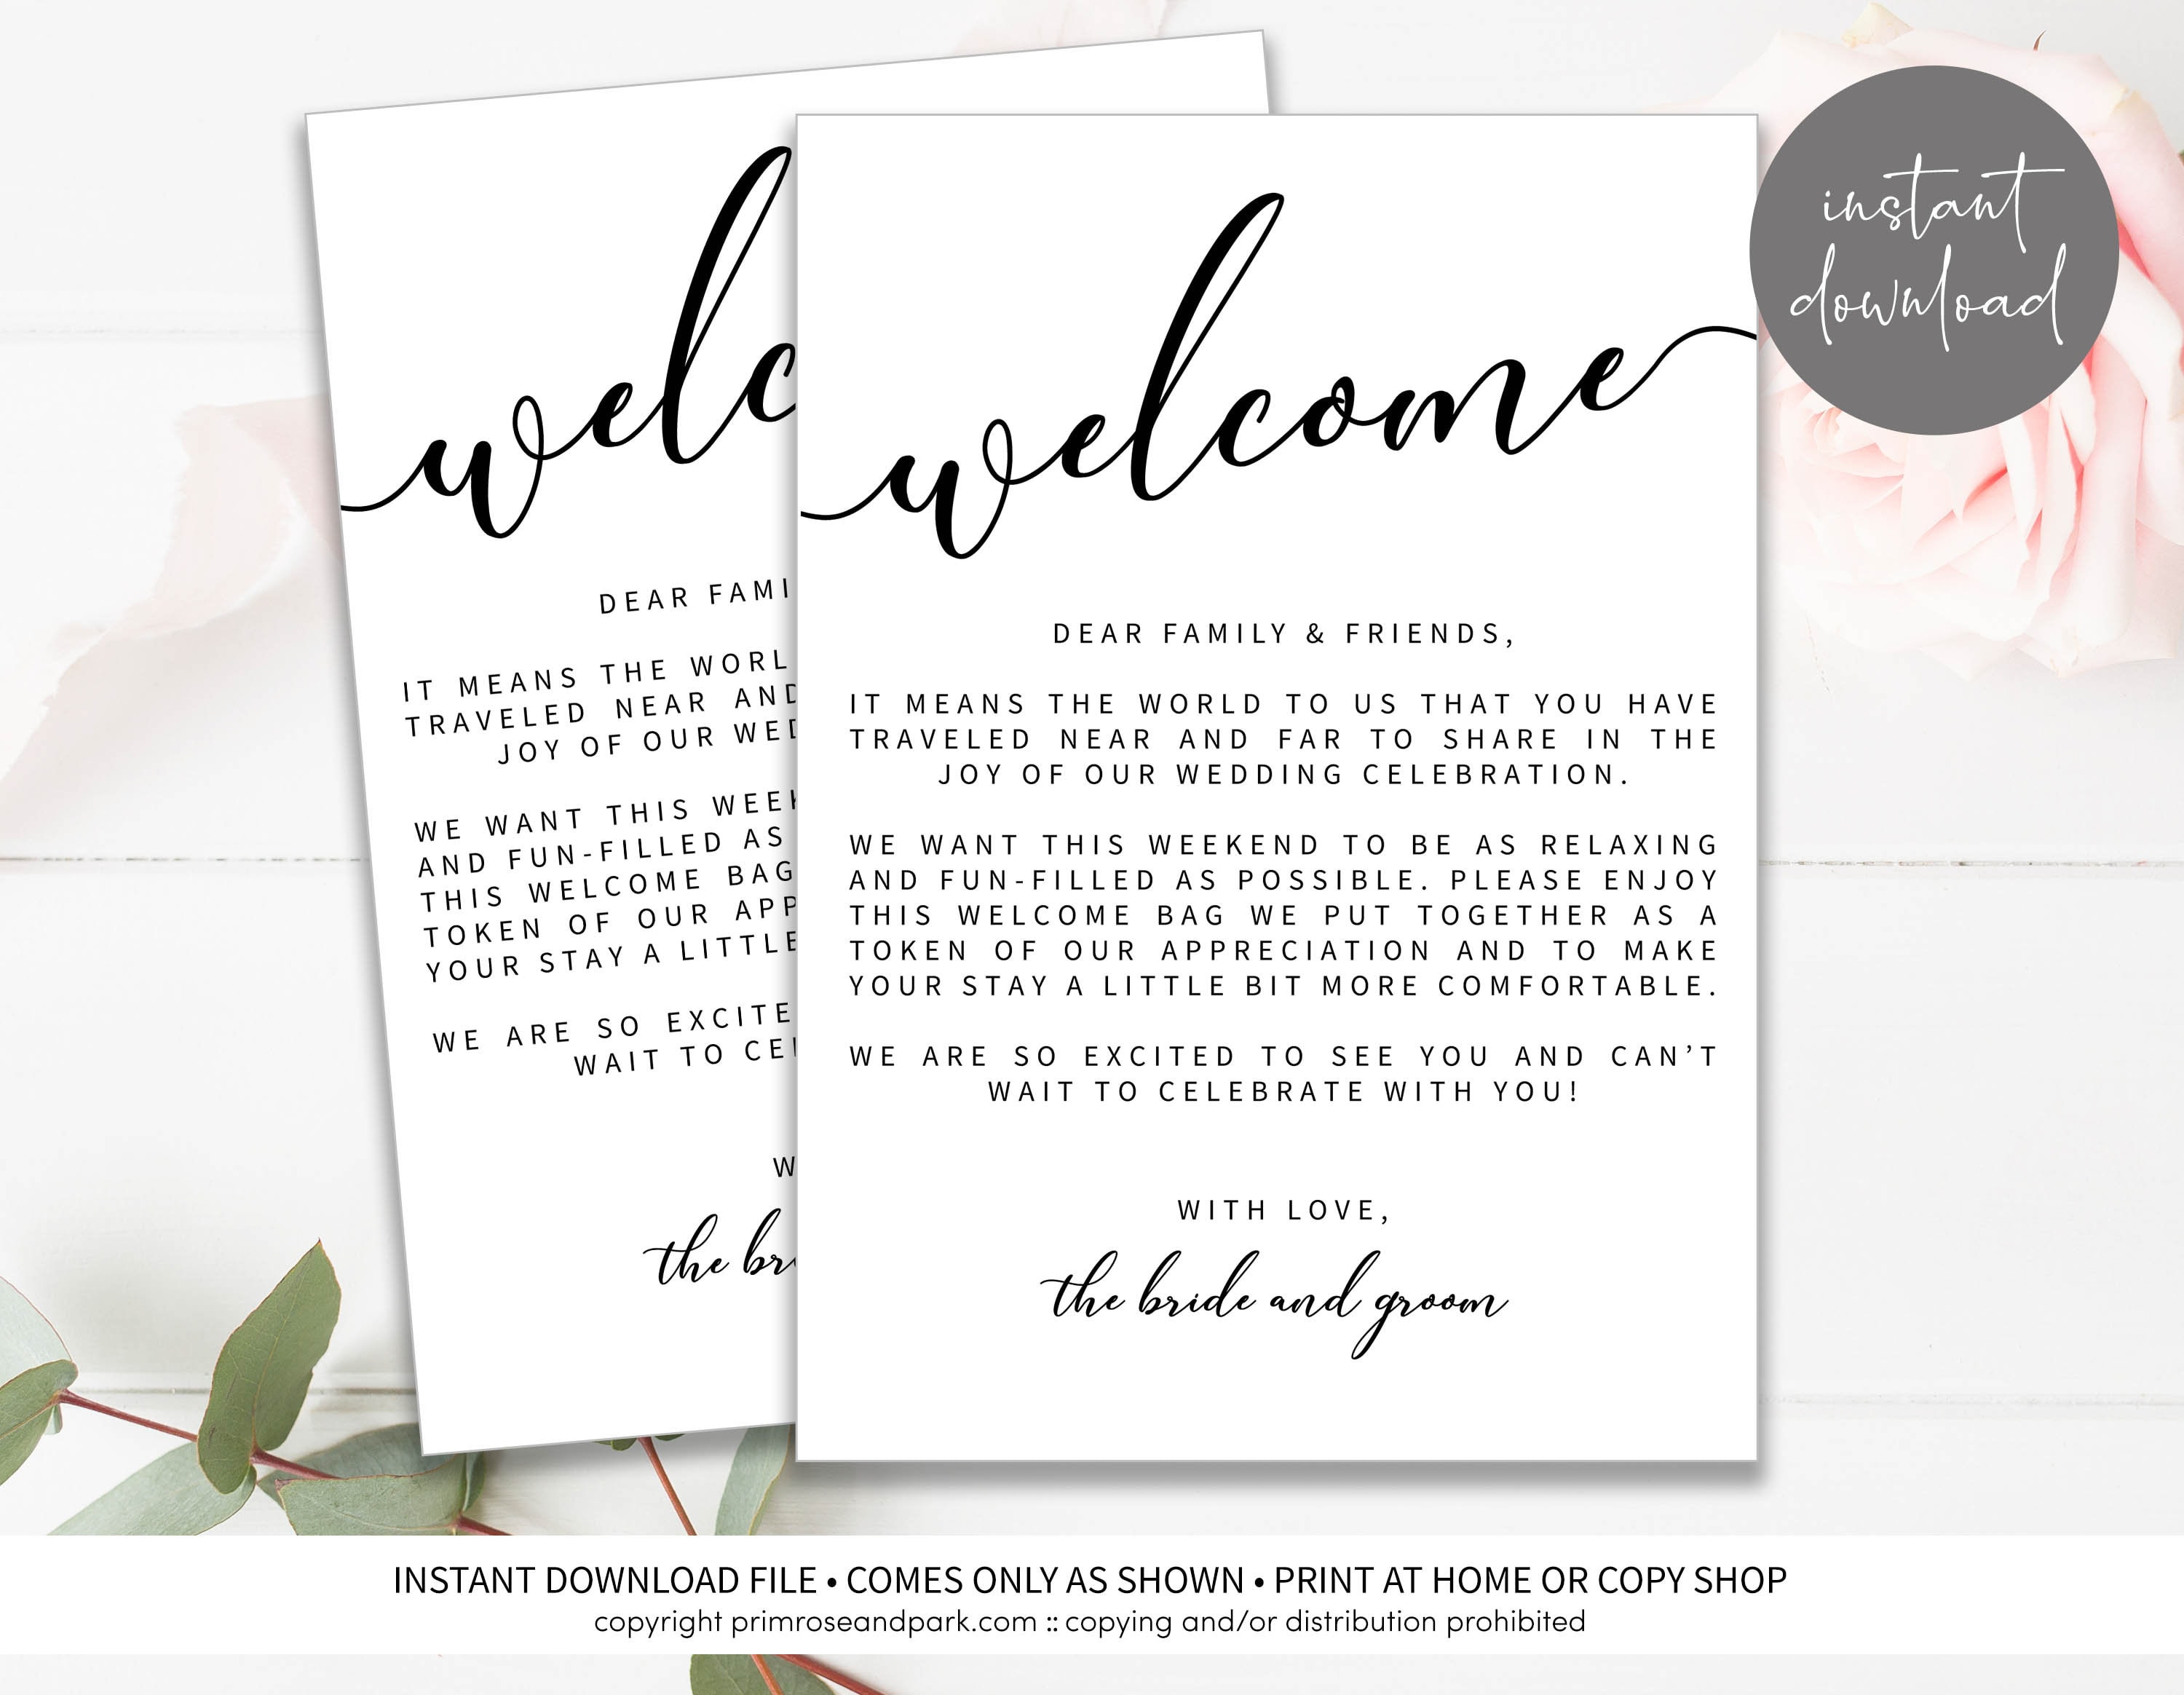 welc
DEAR FAMI
IT MEANS THE WORL
TRAVELED NEAR AND
JOY OF OUR WED
WE WANT THIS WEEK
AND FUN-FILLED AS
THIS WELCOME BAG
TOKEN OF OUR APP
YOUR STAY A LITTLE
WE ARE SO EXCITE
WAIT TO CEL
W
the bri
welcome
DEAR FAMILY & FRIENDS,
IT MEANS THE WORLD TO US THAT YOU HAVE
TRAVELED NEAR AND FAR TO SHARE IN THE
JOY OF OUR WEDDING CELEBRATION.
WE WANT THIS WEEKEND TO BE AS RELAXING
AND FUN-FILLED AS POSSIBLE. PLEASE ENJOY
THIS WELCOME BAG WE PUT TOGETHER AS A
TOKEN OF OUR APPRECIATION AND TO MAKE
YOUR STAY A LITTLE BIT MORE COMFORTABLE.
WE ARE SO EXCITED TO SEE YOU AND CAN'T
WAIT TO CELEBRATE WITH YOU!
WITH LOVE,
the bride and groom
instant
download
INSTANT DOWNLOAD FILE • COMES ONLY AS SHOWN • PRINT AT HOME OR COPY SHOP
copyright primroseandpark.com :: copying and/or distribution prohibited